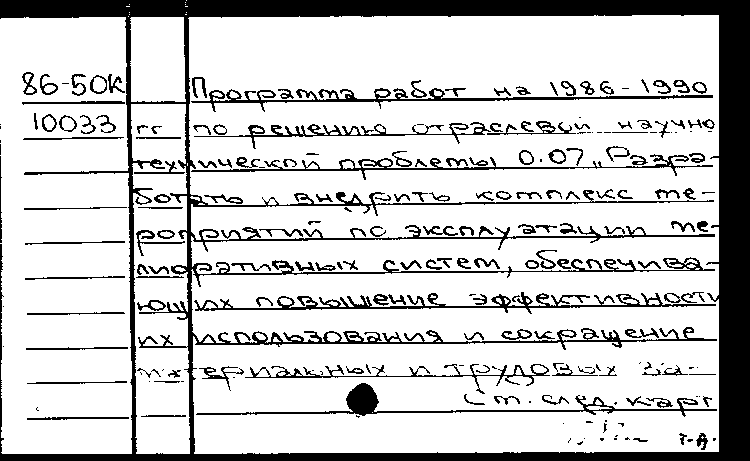 86-50К Программа работ на 1986-1990
10033 гг по решению отраслевой научно
технической проблемы 0.07 „Разра-
ботать и внедрить комплекс ме-
роприятий по эксплуатации ме-
лиоративных систем, обеспечива-
ющих повышение эффективности
их использования и сокращение
материальных и трудовых за-
См. след. карт
т-д.